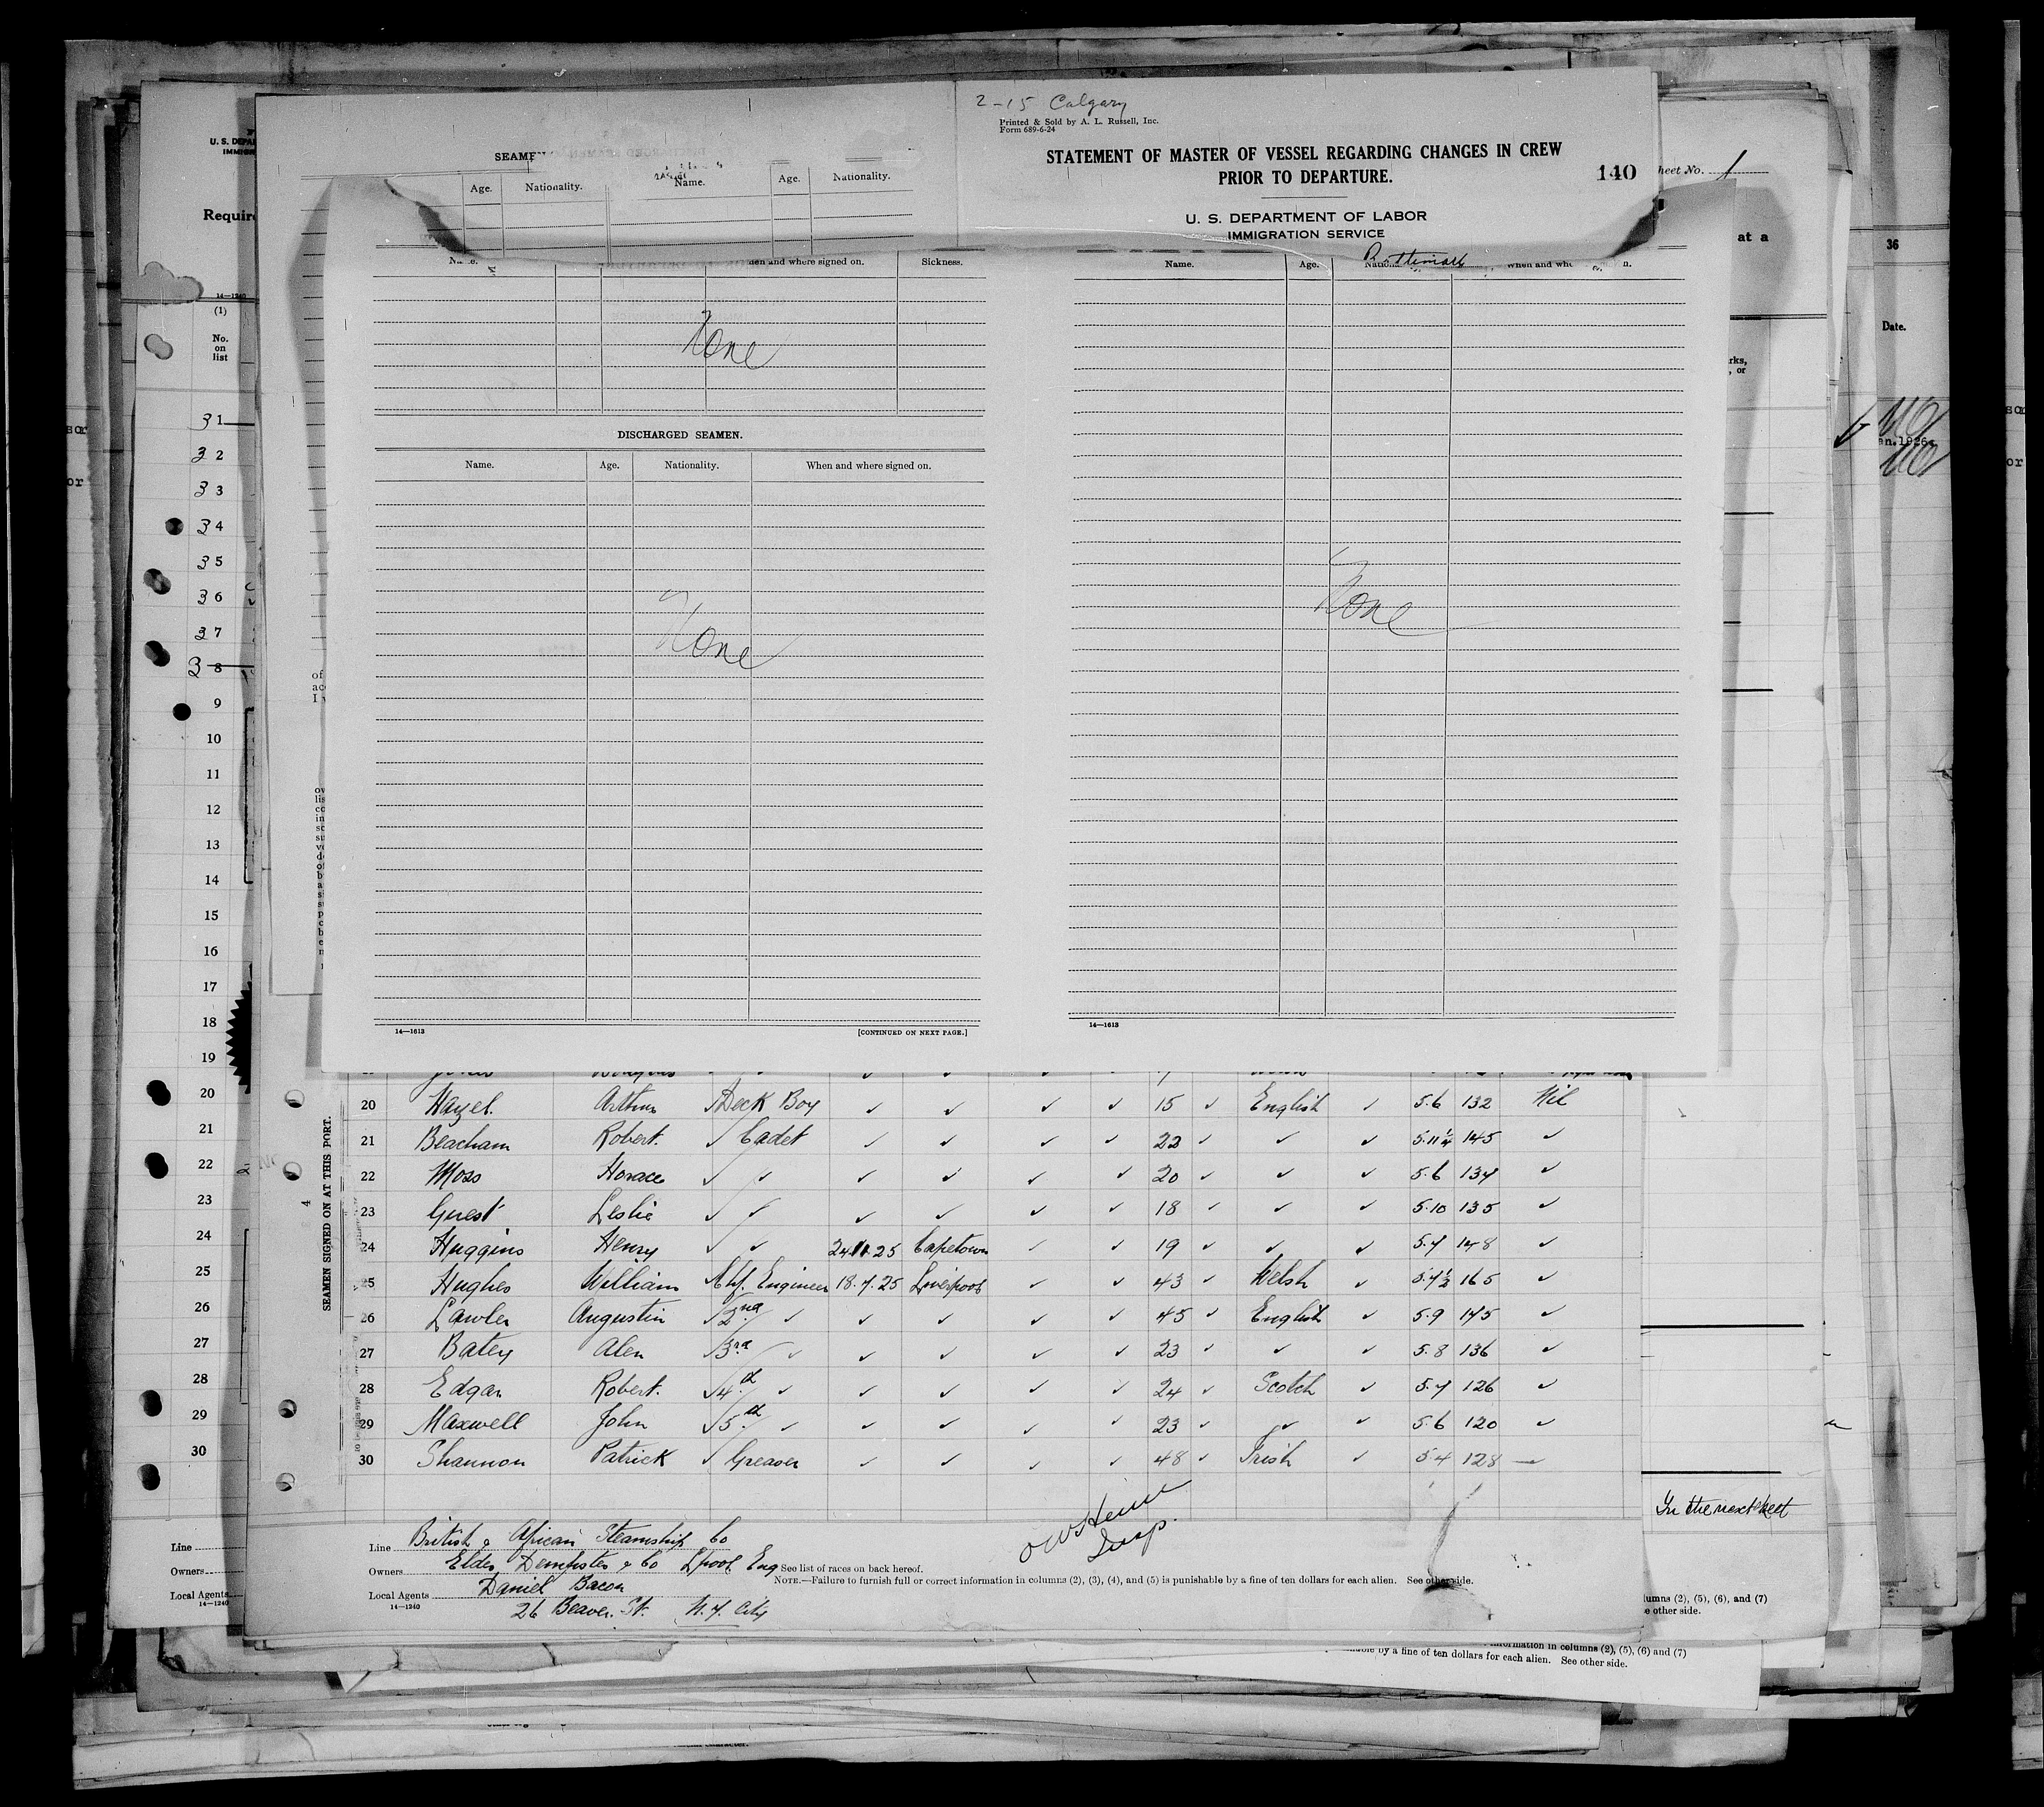 2-15 Calgary
Printed & Sold by A. L. Russell, Inc.
Form 689-6-24
STATEMENT OF MASTER OF VESSEL REGARDING CHANGES IN CREW
PRIOR TO DEPARTURE.
140
U. S. DEPARTMENT OF LABOR
IMMIGRATION SERVICE
heet No. 1
at a
36
Date.
an.1926
SEAMEN
Age. Nationality. Name. Age. Nationality.
when and where signed on. Sickness.
None
DISCHARGED SEAMEN.
Name. Age. Nationality. When and where signed on.
None
14—1613 [CONTINUED ON NEXT PAGE.]
Name. Age.
None
14—1613
U. S. DEPA
IMMIG
Requir
14—1240
(1)
No.
on
list
31
32
33
34
35
36
37
38
9
10
11
12
13
14
15
16
17
18
19
20
21
22
23
24
25
26
27
28
29
30
Line
Owners
Local Agents
14—1240
SEAMEN SIGNED ON AT THIS PORT.
4
20 Hazel. Arthur ✓ Deck Boy ✓ ✓ ✓ ✓ 15 ✓ English ✓ 5.6 132 Nil
21 Beacham Robert. ✓ Cadet ✓ ✓ ✓ ✓ 22 ✓ ✓ ✓ 5.11¼ 145 ✓
22 Moss Horace ✓ ✓ ✓ ✓ ✓ ✓ 20 ✓ ✓ ✓ 5.6 134 ✓
23 Guest Leslie ✓ ✓ ✓ ✓ ✓ ✓ 18 ✓ ✓ ✓ 5.10 135 ✓
24 Huggins Henry ✓ ✓ 24.11.25 Capetown ✓ ✓ 19 ✓ ✓ ✓ 5.7 148 ✓
25 Hughes William Chf. Engineer 18.7.25 Liverpool ✓ ✓ 43 ✓ Welsh ✓ 5.7½ 165 ✓
26 Lawler Augustin ✓ 2nd ✓ ✓ ✓ ✓ ✓ 45 ✓ English ✓ 5.9 145 ✓
27 Batey Alen ✓ 3rd ✓ ✓ ✓ ✓ ✓ 23 ✓ ✓ ✓ 5.8 136 ✓
28 Edgar Robert. ✓ 4th ✓ ✓ ✓ ✓ ✓ 24 ✓ Scotch ✓ 5.7 126 ✓
29 Maxwell John ✓ 5th ✓ ✓ ✓ ✓ ✓ 23 ✓ ✓ ✓ 5.6 120 ✓
30 Shannon Patrick ✓ Greaser ✓ ✓ ✓ ✓ 48 ✓ Irish ✓ 5.4 128 —
Insp.
In the next sheet
Line British & African Steamship Co
Owners Elder Dempster & Co Lpool Eng See list of races on back hereof.
NOTE.—Failure to furnish full or correct information in columns (2), (3), (4), and (5) is punishable by a fine of ten dollars for each alien. See other side.
Local Agents Daniel Bacon
14—1240
26 Beaver. St. N.Y. City
lumns (2), (5), (6), and (7)
e other side.
information in columns (2), (5), (6) and (7)
by a fine of ten dollars for each alien. See other side.